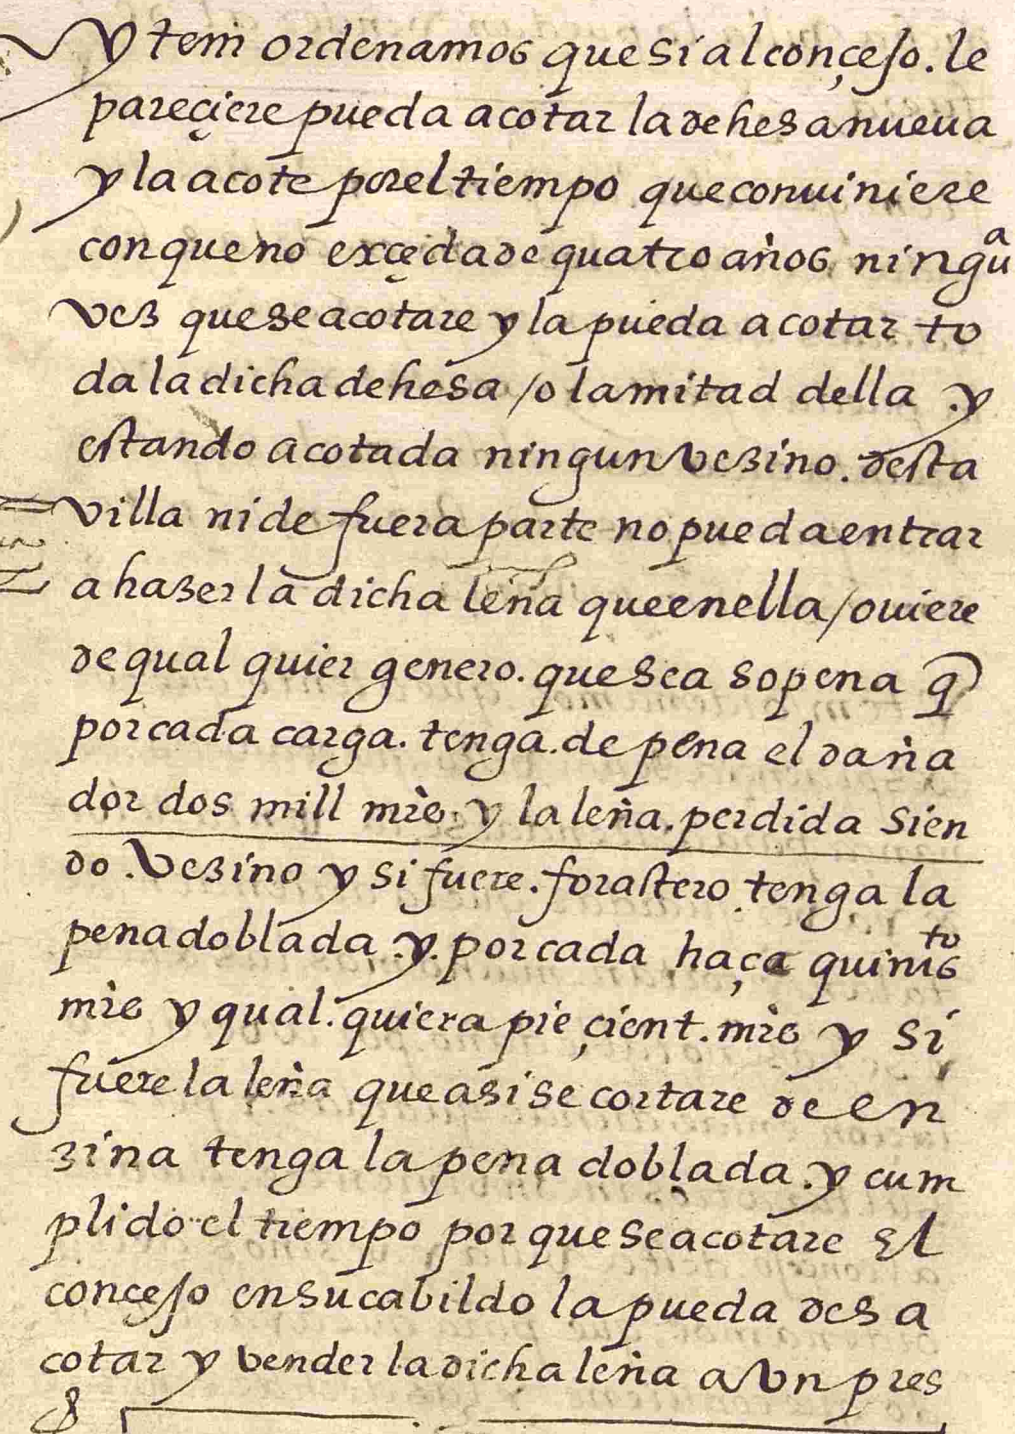 ytem ordenamos que si al conçejo. le
pareçiere pueda acotar la dehesa nueua
y la acote por el tiempo que conuiniere
con que no exçeda de quatro años ninguª
vez que se acotare y la pueda acotar to
da la dicha dehesa /o la mitad della y
estando acotada ningun vezino. desta
villa ni de fuera parte no pueda entrar
a hazer la dicha leña que en ella /ouiere
de qual quier genero. que sea so pena q̃
por cada carga. tenga. de pena el daña
dor dos mill mrs. y la leña. perdida sien
do. vezino y si fuere. forastero tenga la
pena doblada .y. por cada haça quiniᵗᵒs
mrs y qual. quiera pie çient. mrs y si
fuere la leña que asi se cortare de en
zina tenga la pena doblada. y cum
plido el tiempo por que se acotare El
conçejo en su cabildo la pueda des a
cotar y vender la dicha leña a vn pres